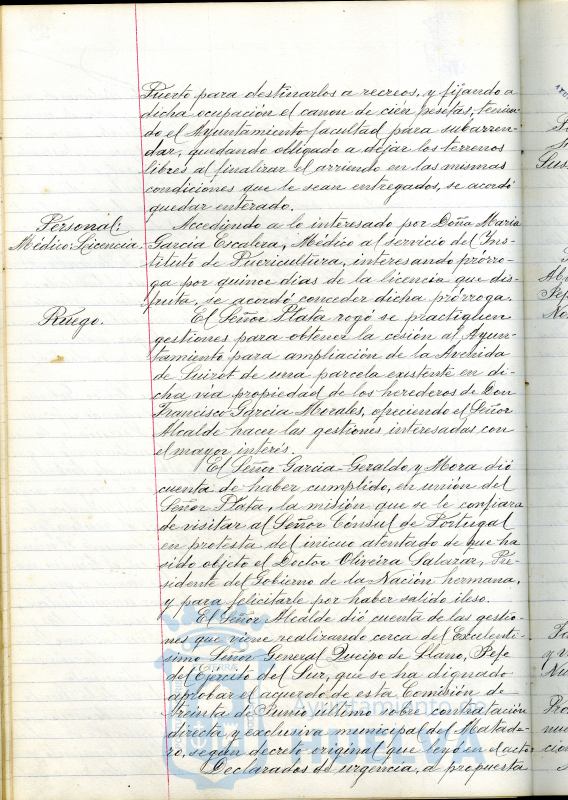 Puerto para destinarlos a recreos, y fijando a
dicha ocupación el canon de cien pesetas, tenien-
do el Ayuntamiento facultad para subarren-
dar, quedando obligado a dejar los terrenos
libres al finalizar el arriendo en las mismas
condiciones que le sean entregados, se acordó
quedar enterado.
Personal:
Médico: Licencia.
Accediendo a lo interesado por Doña Maria
Garcia Escalera, Médico al servicio del Ins-
tituto de Puericultura, interesando prórro-
ga por quince dias de la licencia que dis-
fruta, se acordó conceder dicha prórroga.
Ruego.
El Señor Plata rogó se practiquen
gestiones para obtener la cesión al Ayun-
tamiento para ampliación de la Avenida
de de una parcela existente en di-
cha via propiedad de los herederos de Don
Francisco Garcia Morales, ofreciendo el Señor
Alcalde hacer las gestiones interesadas con
el mayor interés.
El Señor Garcia-Geraldo y Mora dió
cuenta de haber cumplido, en unión del
Señor Plata, la misión que se le confiara
de visitar al Señor Consul de Portugal
en protesta del inicuo atentado de que ha
sido objeto el Doctor Oliveira Salazar, Pre-
sidente del Gobierno de la Nación hermana,
y para felicitarle por haber salido ileso.
El Señor Alcalde dió cuenta de las gestio-
nes que viene realizando cerca del Excelentí-
simo Señor General Queipo de Llano, Jefe
del Ejército del Sur, que se ha dignado
aprobar el acuerdo de esta Comisión de
treinta de Junio último sobre contratación
directa y exclusiva municipal del Matade-
ro, según decreto original que leyó en el acto.
Declarados de urgencia, a propuesta
Ayuntamiento de
HUELVA